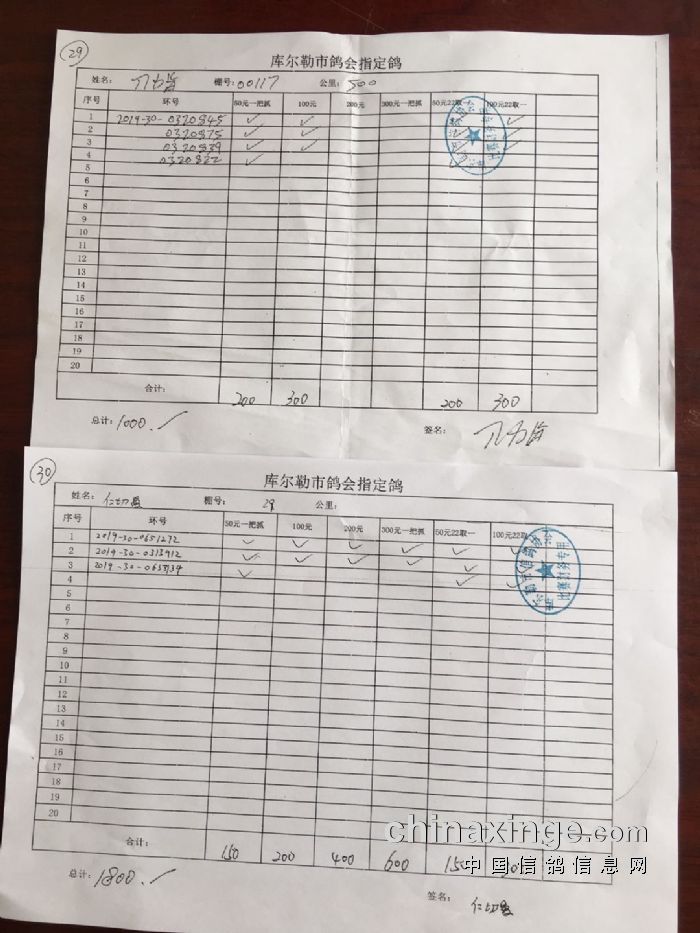 29
库尔勒市鸽会指定鸽
姓名: 棚号: 00117 公里: 500
序号 环号 50元一把抓 100元 200元 300元一把抓 50元22取一 100元22取一
1 2019-30-0320845 ✓ ✓ ✓
2 0320875 ✓ ✓ ✓
3 0320839 ✓ ✓ ✓
4 0320822 ✓
5
6
7
8
9
10
11
12
13
14
15
16
17
18
19
20
合计: 200 300 200 300
总计: 1000. 签名:
30
库尔勒市鸽会指定鸽
姓名: 棚号: 29 公里:
序号 环号 50元一把抓 100元 200元 300元一把抓 50元22取一 100元22取一
1 2019-30-0651272 ✓ ✓ ✓ ✓ ✓ ✓
2 2019-30-0313912 ✓ ✓ ✓ ✓ ✓
3 2019-30- ✓ ✓ ✓
4
5
6
7
8
9
10
11
12
13
14
15
16
17
18
19
20
合计: 150 200 400 600
总计: 1800. 签名:
比赛财务专用
chinaxinge.com
中国信鸽信息网